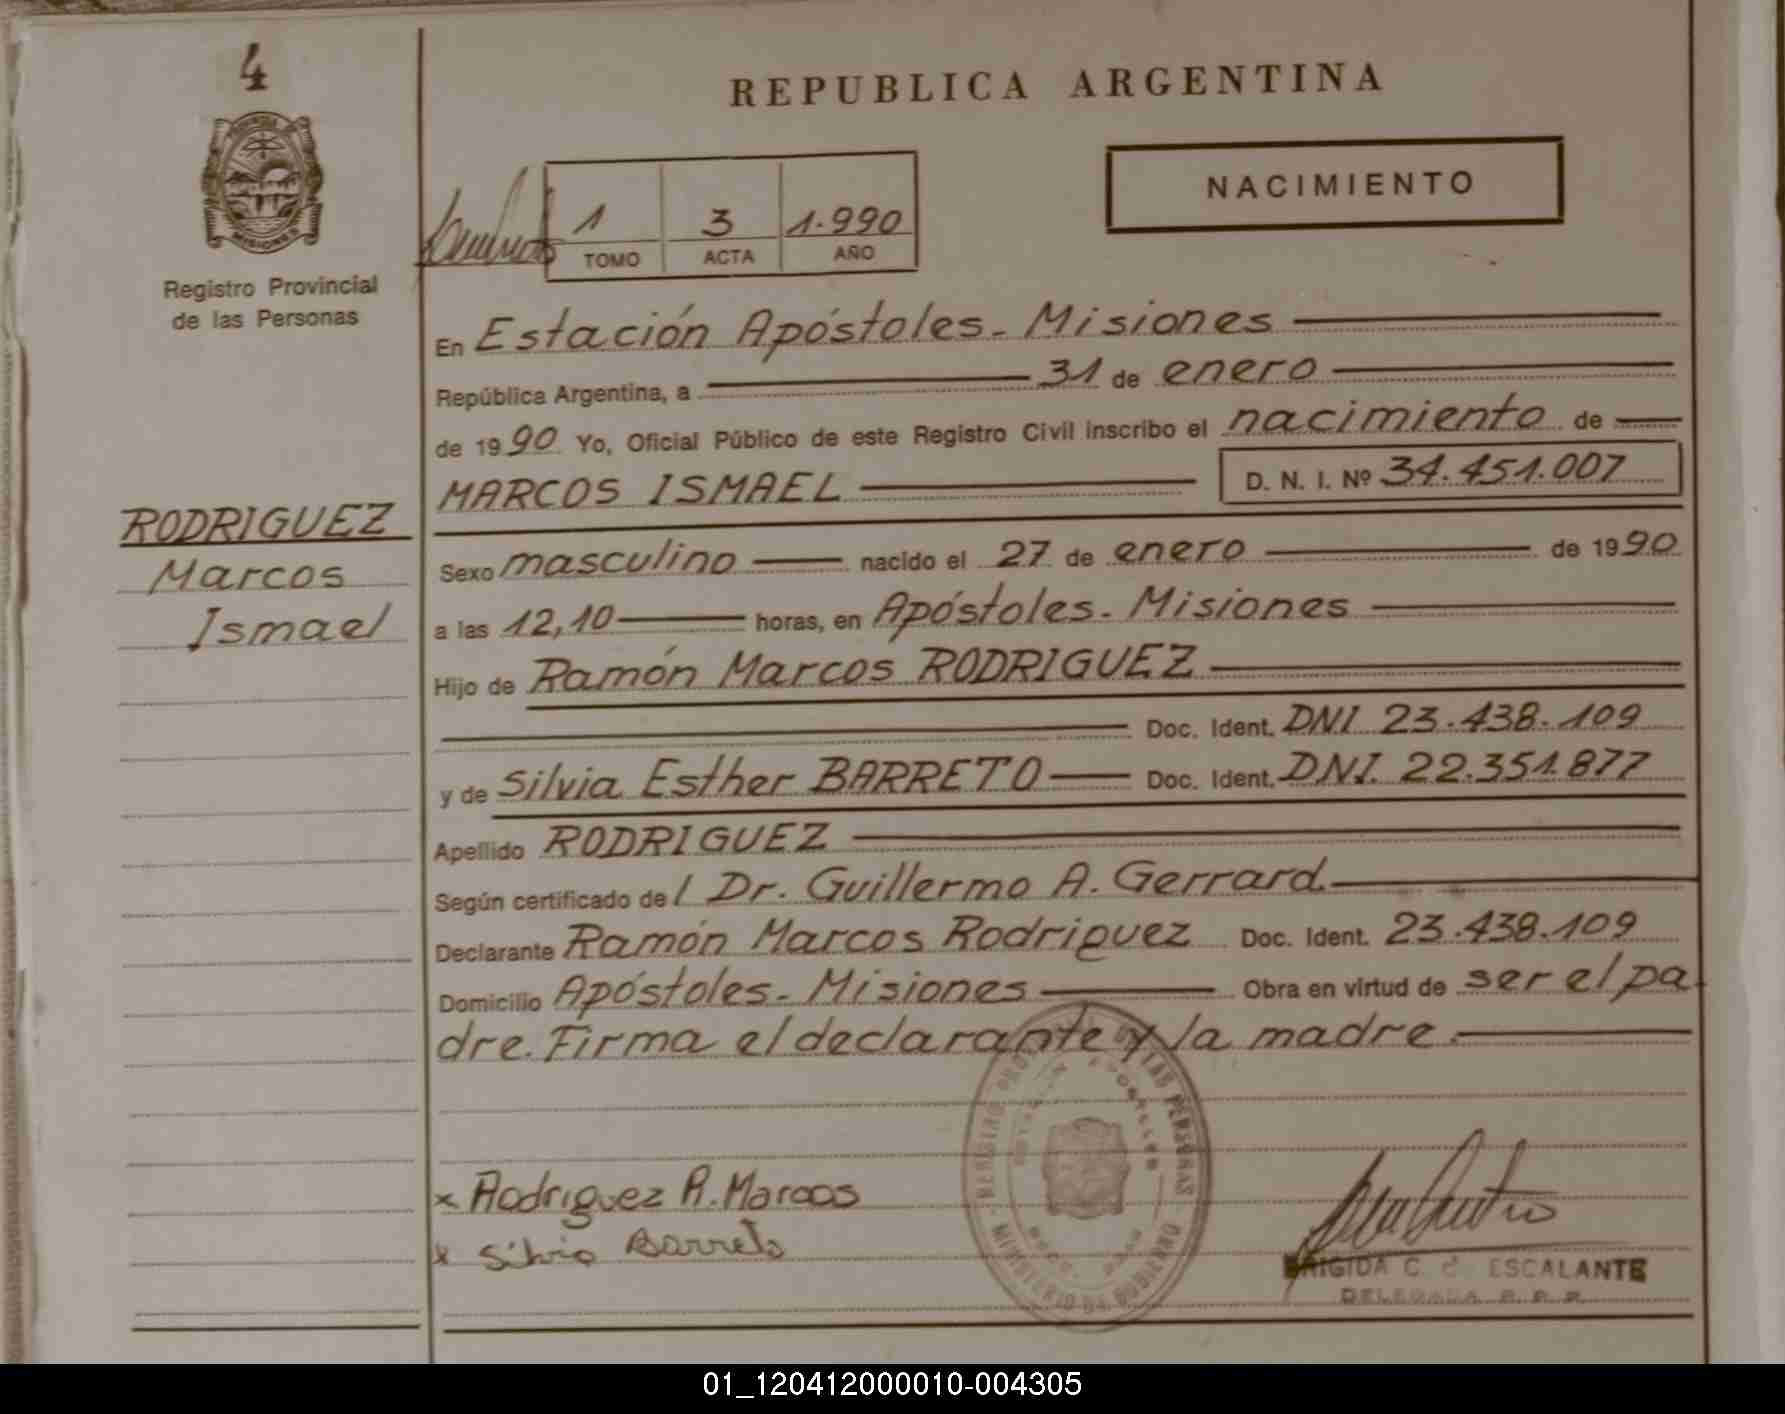 4
REPUBLICA ARGENTINA
NACIMIENTO
MISIONES
1 3 1.990
TOMO ACTA AÑO
Registro Provincial
de las Personas
En Estación Apóstoles - Misiones
República Argentina, a 31 de enero
de 1990 Yo, Oficial Público de este Registro Civil inscribo el nacimiento de
MARCOS ISMAEL D. N. I. Nº 34.451.007
RODRIGUEZ
Marcos
Ismael
Sexo masculino nacido el 27 de enero de 1990
a las 12,10 horas, en Apóstoles - Misiones
Hijo de Ramón Marcos RODRIGUEZ
Doc. Ident. DNI 23.438.109
y de Silvia Esther BARRETO Doc. Ident. DNI. 22.351.877
Apellido RODRIGUEZ
Según certificado de l Dr. Guillermo A. Gerrard
Declarante Ramón Marcos Rodriguez Doc. Ident. 23.438.109
Domicilio Apóstoles - Misiones Obra en virtud de ser el pa
dre. Firma el declarante y la madre
x Rodriguez R. Marcos
x Silvia Barreto
MINISTERIO DE GOBIERNO
BRIGIDA C. d. ESCALANTE
DELEGADA R. P. P.
01_120412000010-004305